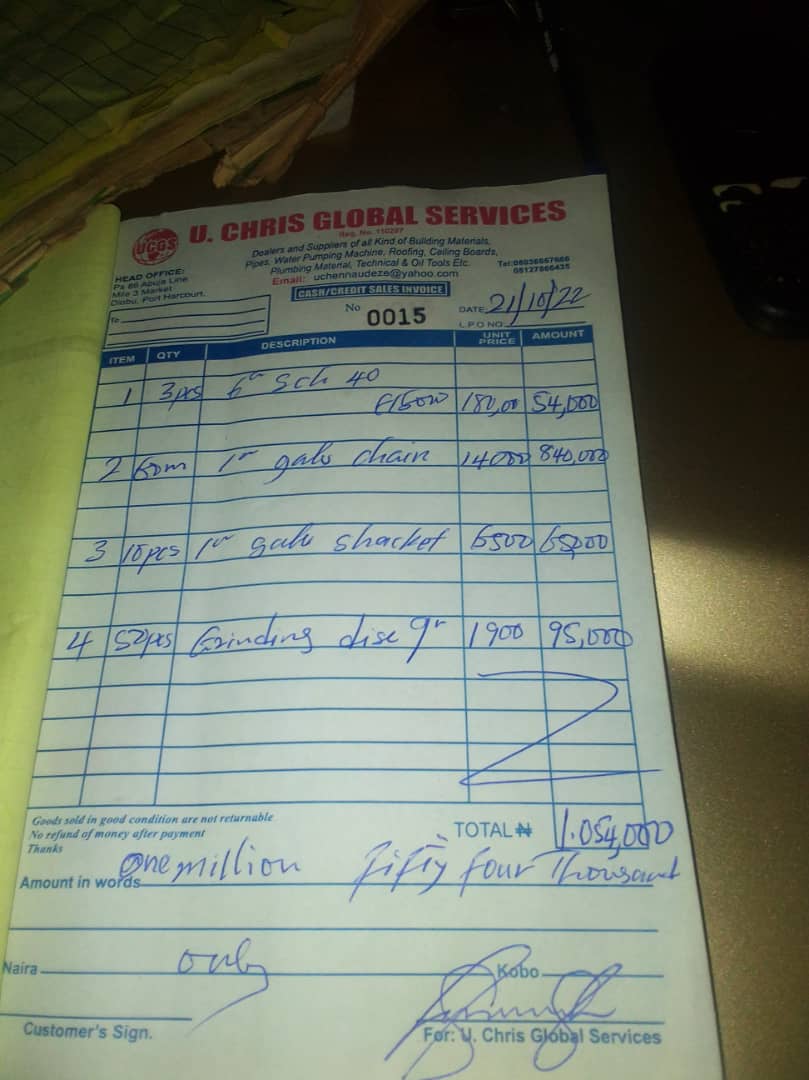 U. CHRIS GLOBAL SERVICES
Reg. No. 110297
UCGS
Dealers and Suppliers of all Kind of Building Materials,
Pipes, Water Pumping Machine, Roofing, Ceiling Boards,
Plumbing Material, Technical & Oil Tools Etc.
Email: uchennaudeze@yahoo.com
HEAD OFFICE:
Pa 86 Abuja Line
Mile 3 Market
Diobu, Port Harcourt.
Tel:08036657666
08127866435
CASH/CREDIT SALES INVOICE
To
No 0015
DATE 21/10/22
L.P.O NO.
ITEM QTY DESCRIPTION UNIT PRICE AMOUNT
1 3pcs 6" Sch 40
Elbow 180,00 54,000
2 60m 1" galv chain 14000 840,000
3 10pcs 1" galv shacket 6500 65000
4 50pcs Grinding disc 9" 1900 95,000
Goods sold in good condition are not returnable
No refund of money after payment
Thanks
TOTAL ₦ 1.054,000
Amount in words One million fifty four Thousand
Naira only Kobo
Customer's Sign. For: U. Chris Global Services